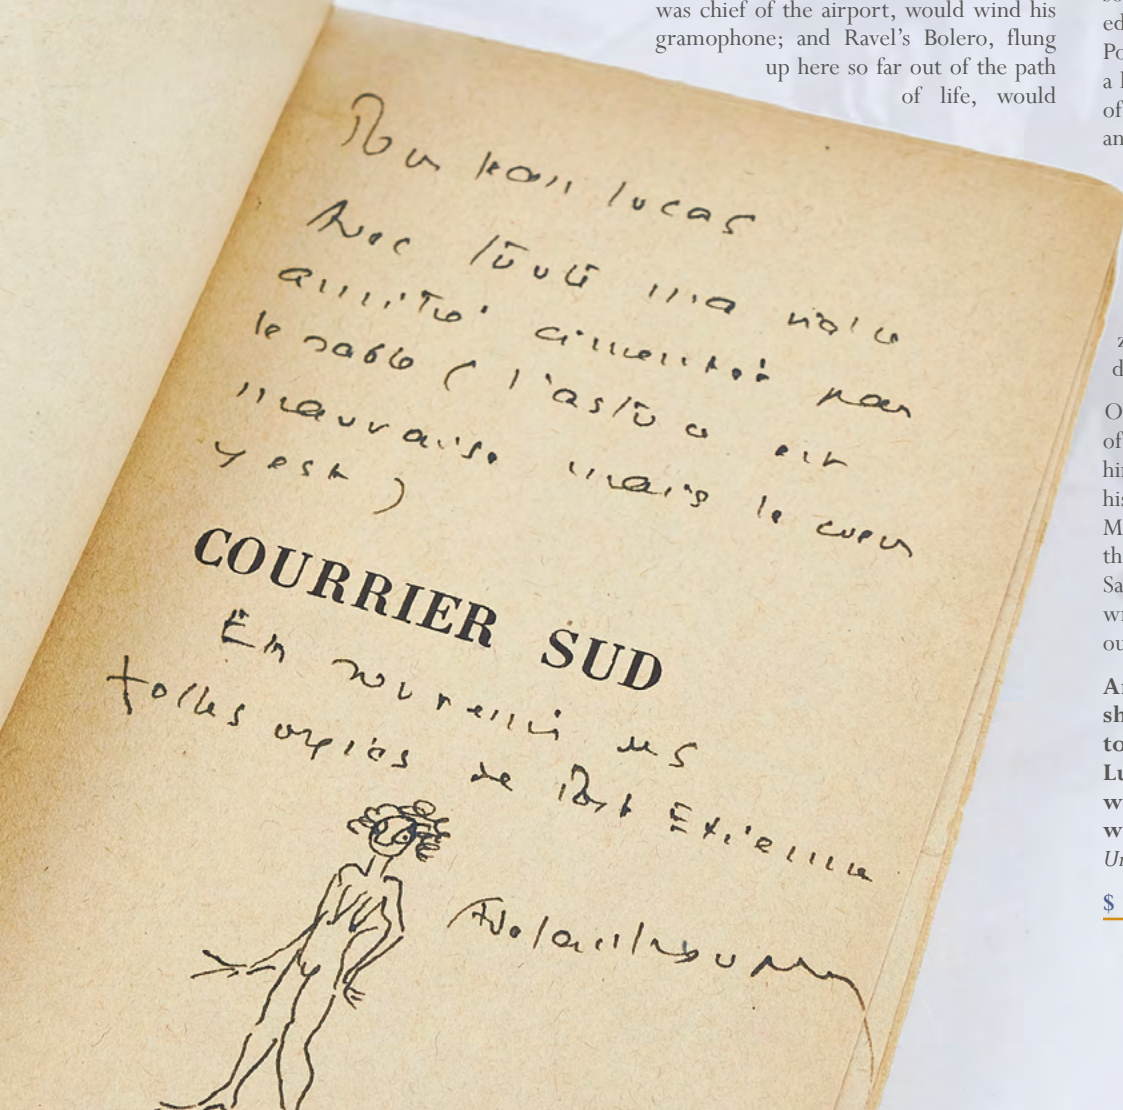 was chief of the airport, would wind his
gramophone; and Ravel's Bolero, flung
up here so far out of the path
of life, would
Pour Jean Lucas
Avec toute ma vieille
amitié cimentée par
le sable (l'astuce est
mauvaise mais le coeur
y est)
COURRIER SUD
En souvenir des
folles orgies de Port Etienne
of
of
his
to
$